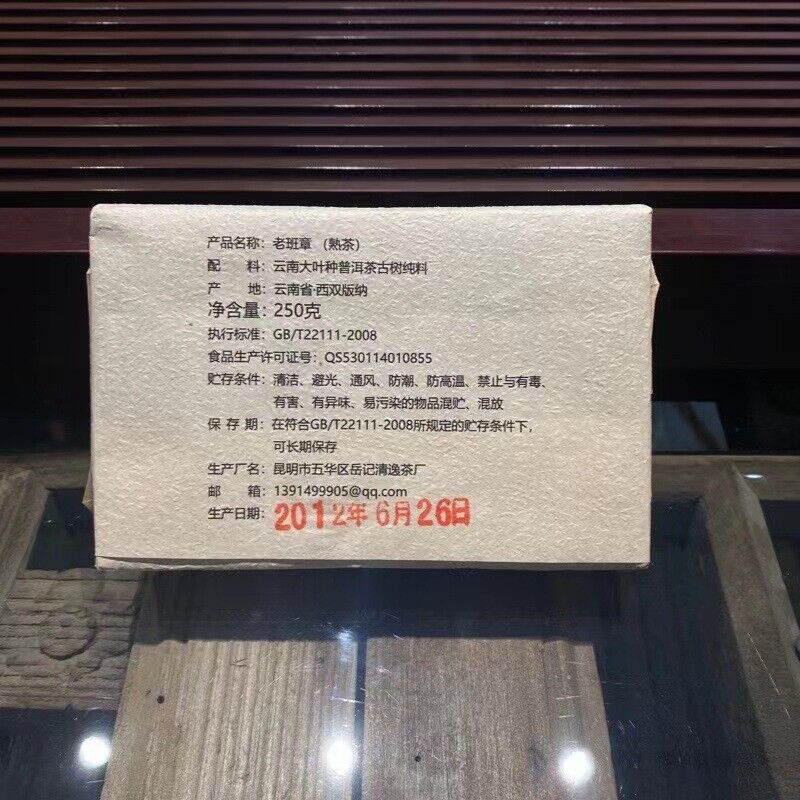 产品名称：老班章（熟茶）
配 料：云南大叶种普洱茶古树纯料
产 地：云南省·西双版纳
净含量：250克
执行标准：GB/T22111-2008
食品生产许可证号：QS530114010855
贮存条件：清洁、避光、通风、防潮、防高温、禁止与有毒、
有害、有异味、易污染的物品混贮、混放
保 存 期：在符合GB/T22111-2008所规定的贮存条件下，
可长期保存
生产厂名：昆明市五华区岳记清逸茶厂
邮 箱：1391499905@qq.com
生产日期：2012年6月26日